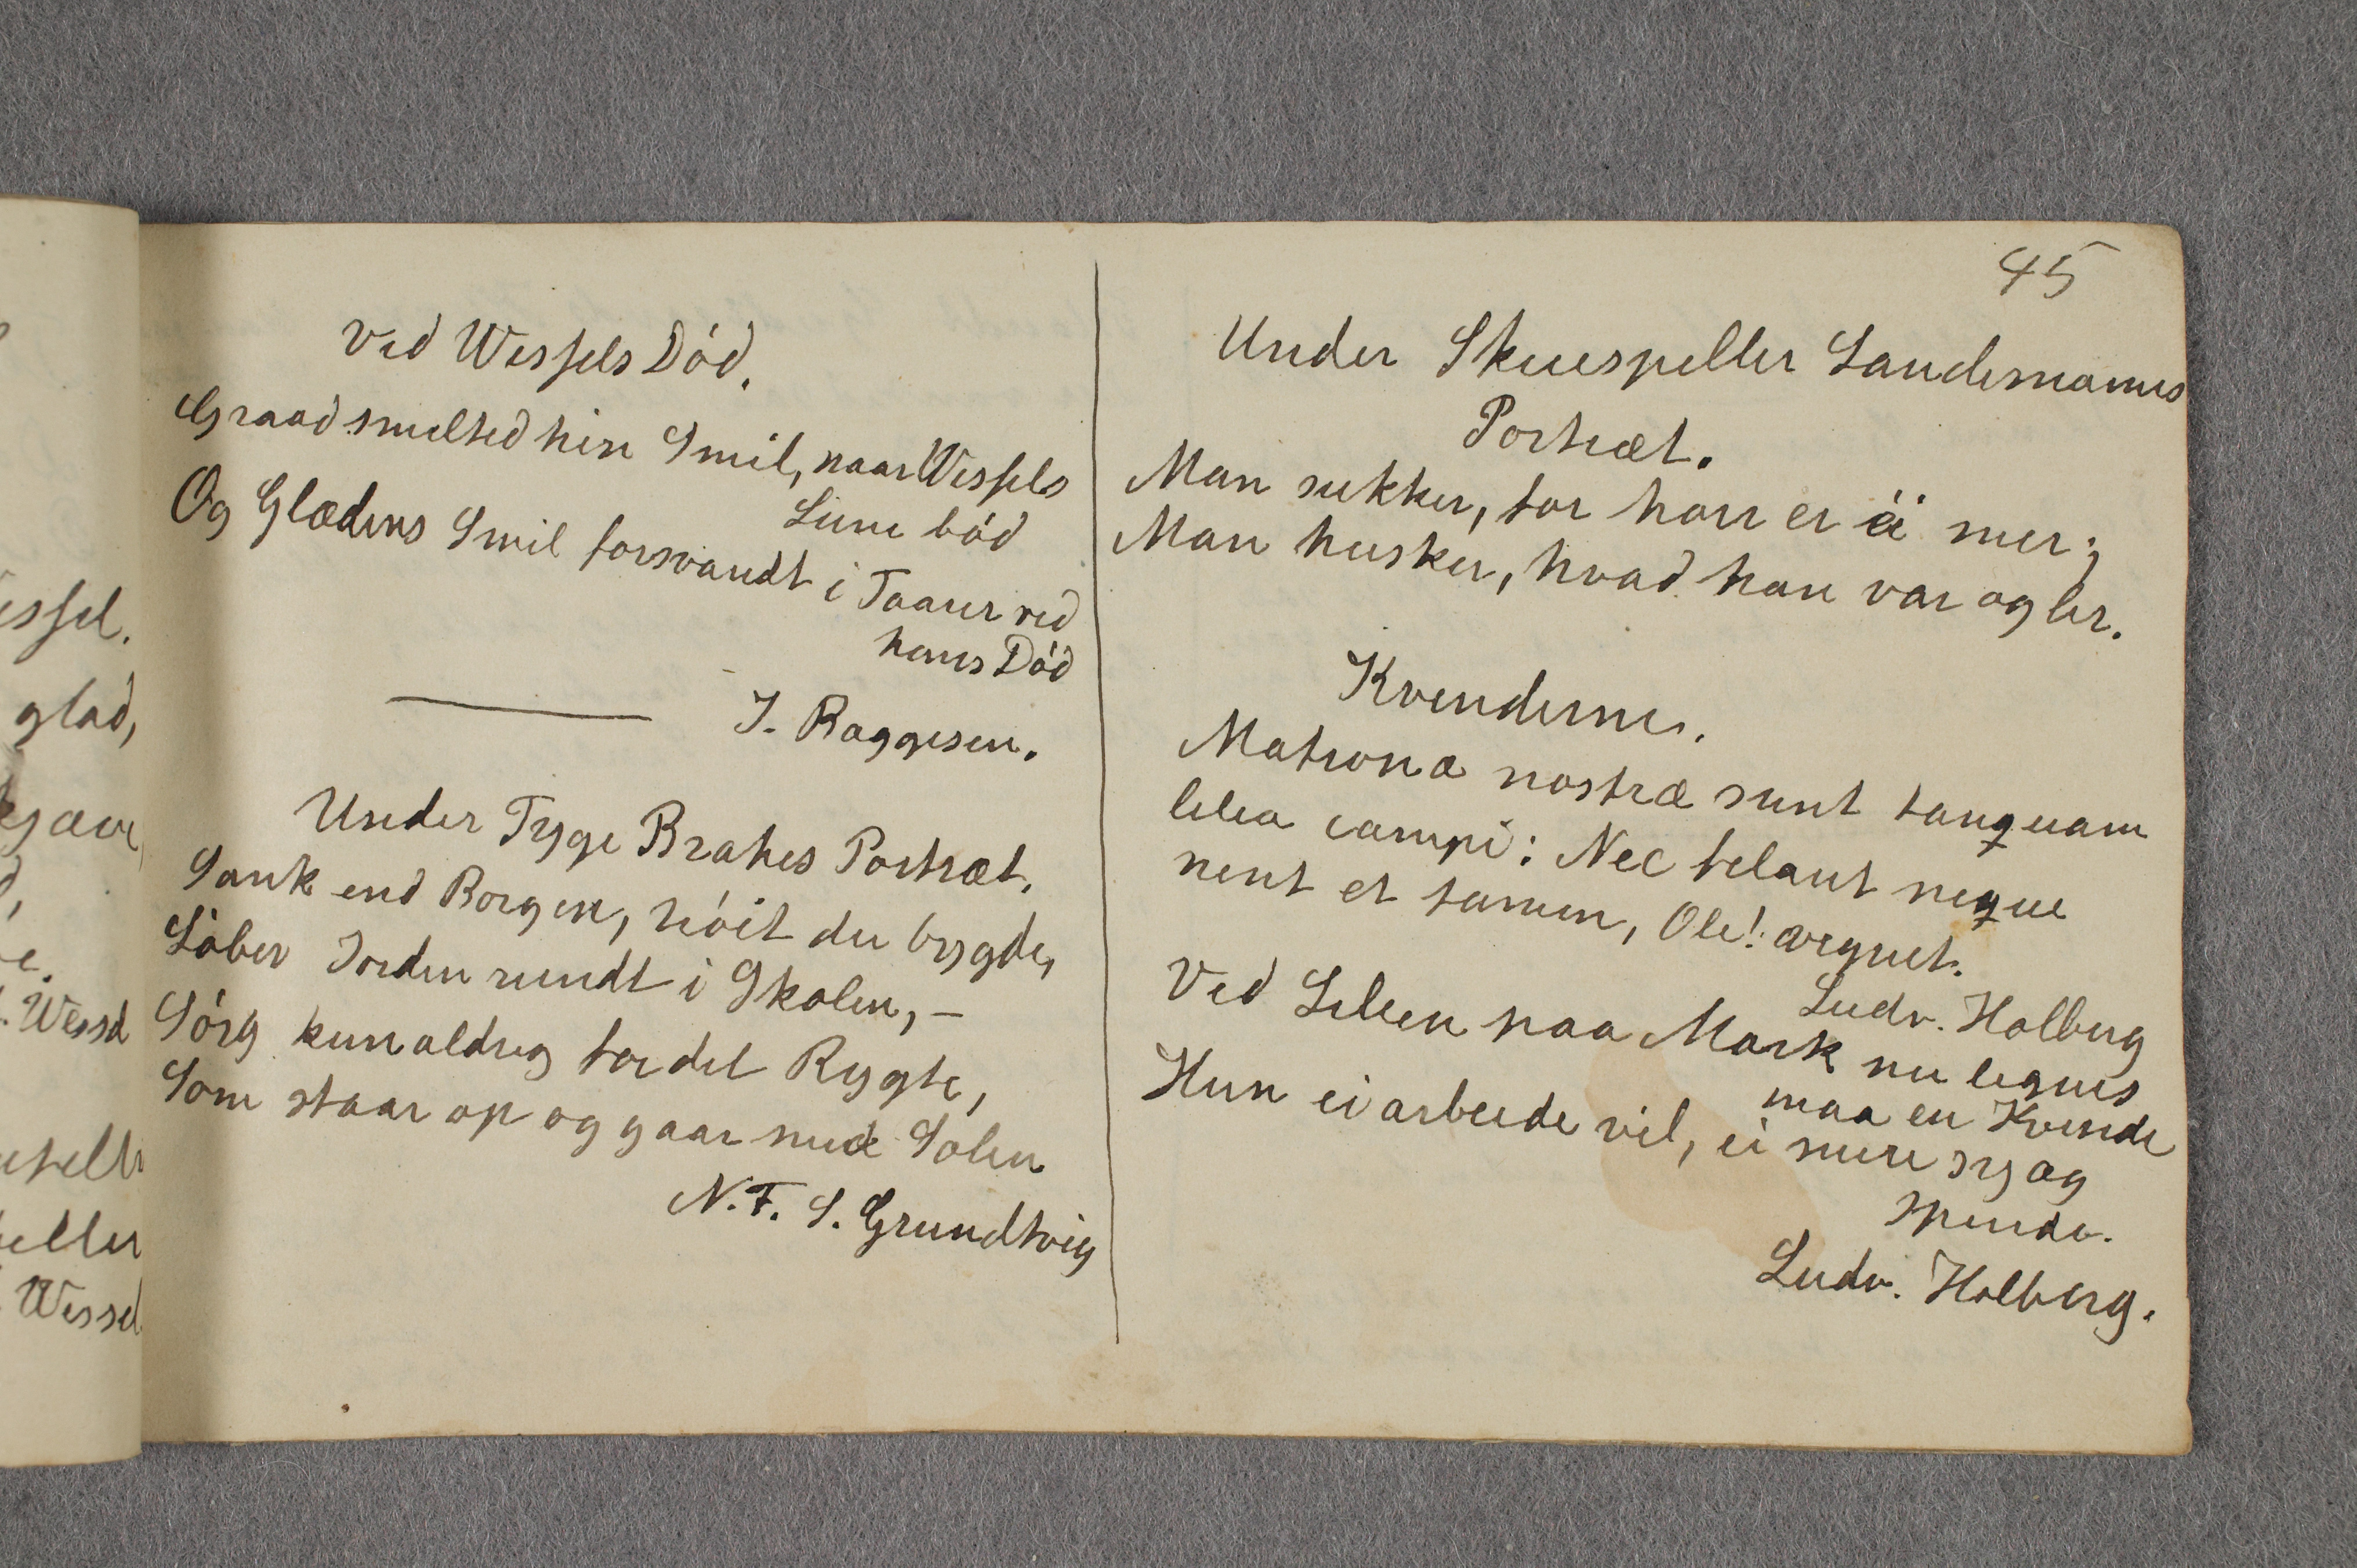 ved Wessels Död.
Graad smelted hen i Smil, naar Wessels
Lune böd
Og Glædens Smil forsvandt i Taarer ved
hans Död
J. Baggesen.
Under Tyge Brahes Portræt.
Sank end Borgen, höit du bygde,
Löber Jorden rundt i Skolen,-
Sörg kun aldrig for det Rygte,
Som staar op og gaar med Solen
N. F. S. Grundtvig
45
Under Skuespiller Landemanns
Portræt.
Man sukker, for han er ei mer;
Man husker, hvad han var og ler.
Kvinderne.
Matronæ nostræ sunt tanquam
lilia campi: Nec telant neque
nent et tamen, Ole!
Ludv. Holberg
Ved Lilien paa Mark nu lignes
maa en Kvinde
Hun ei arbeide vil, ei mere sy og
spinde.
Ludv. Holberg.
issel.
glad,
Wessel
eller
Wessel